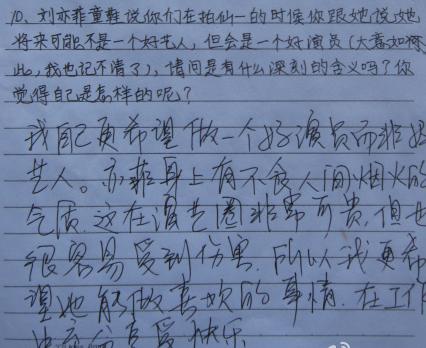 10、刘亦菲童鞋说你们在拍仙一的时候你跟她说,她
将来可能不是一个好艺人,但会是一个好演员(大意如
此,我也记不清了),请问是有什么深刻的含义吗?你
觉得自己是怎样的呢?
我自己更希望做一个好演员而非
艺人。亦菲身上有不食人间烟火的
气质.这在演艺圈非常可贵.但也
很容易受到伤害.所以我更希
望她能做喜欢的事情.在工作
享受快乐